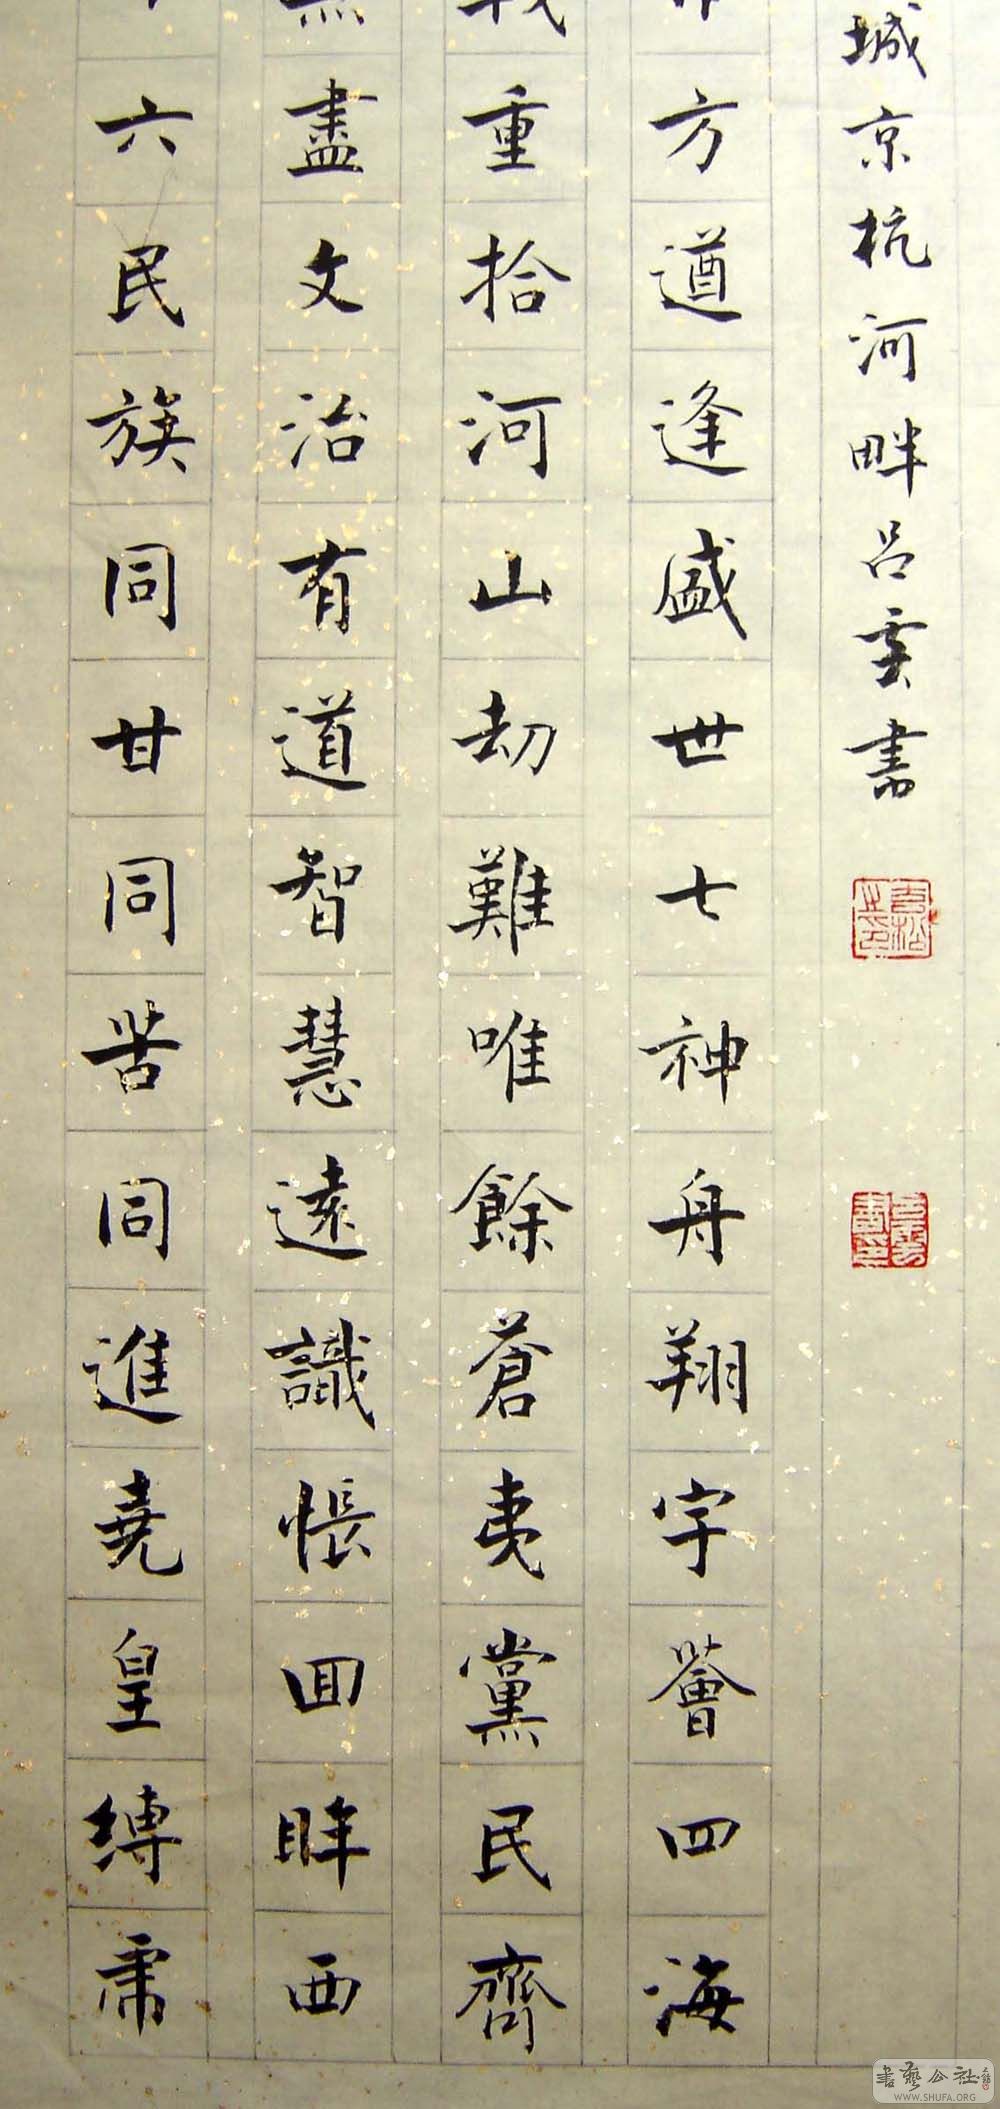 六民族同甘同苦同進堯皇縛
盡文治有道智慧遠識悵回眸西
重拾河山劫難唯餘蒼夷黨民齊
方遒逢盛世七神舟翔宇薈四海
城京杭河畔吕書
書藝公社
WWW.SHUFA.ORG